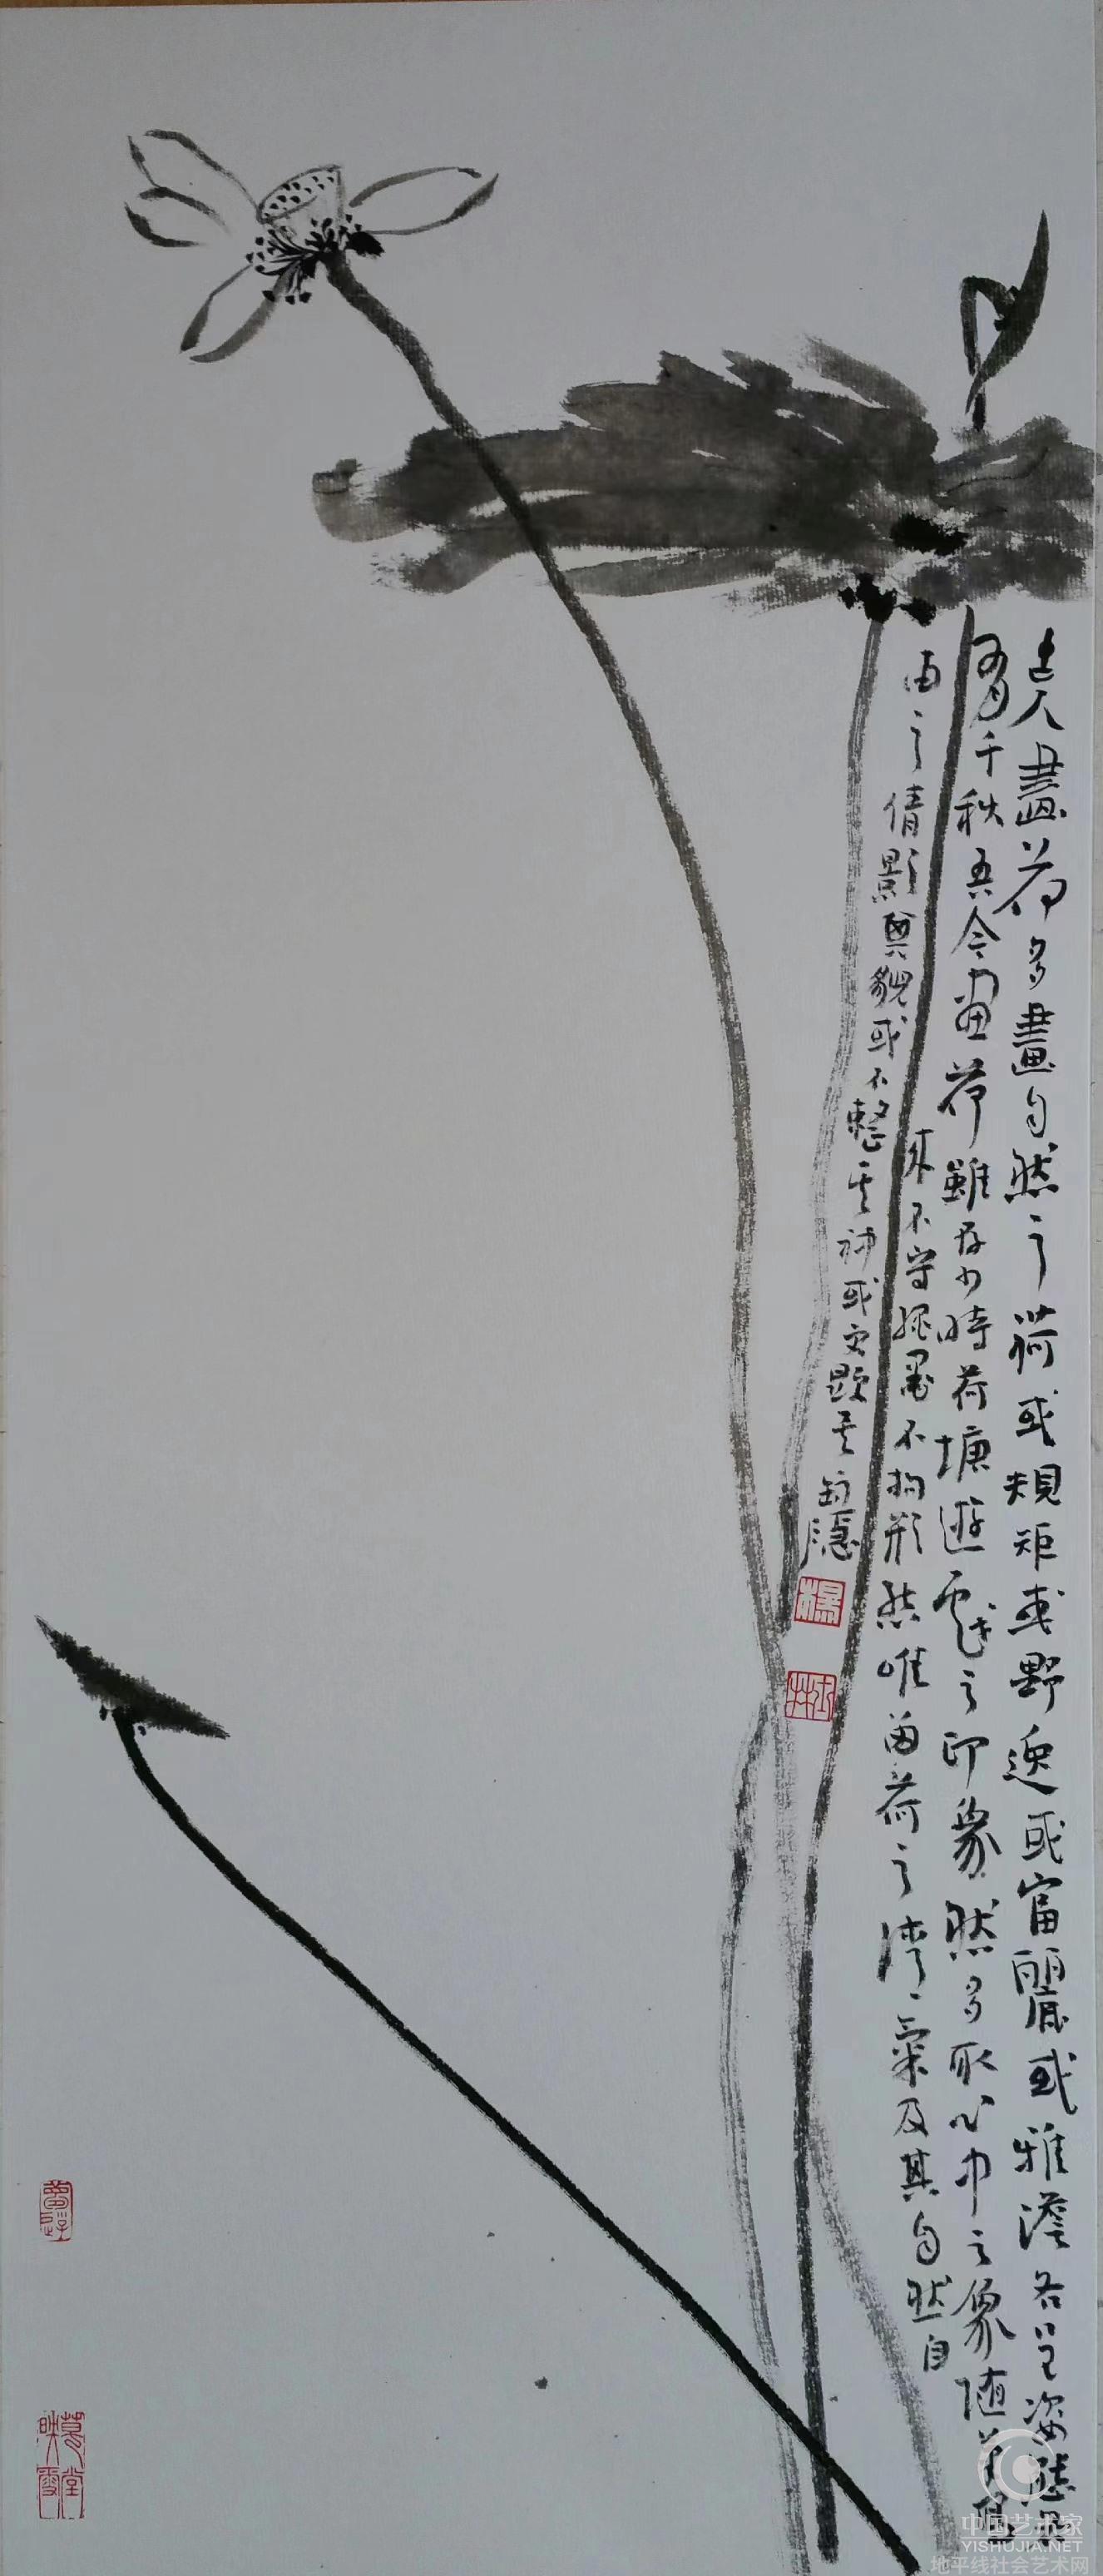 古人畫荷多畫自然之荷或規矩或野逸或富麗或雅澹各呈姿態
千秋吾今画荷雖存少時荷塘遊戲之印象然多取心中之象随
來不守繩墨不拘形態唯留荷之清氣及其自然自
由之倩影真貌或不整其神或
隱
楊
林
中国艺术家
YISHUJIA.NET
地平线社会艺术网